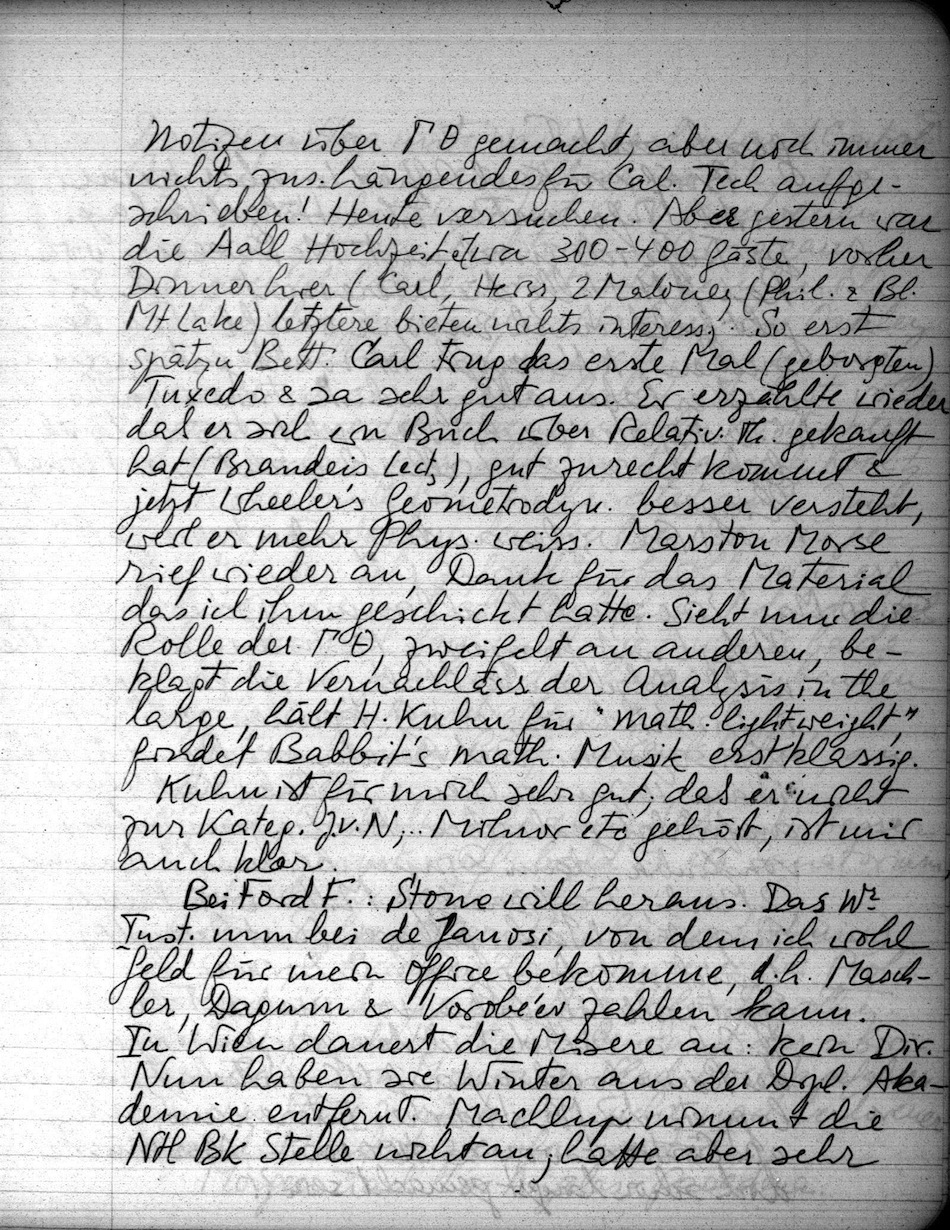 Notizen über Γ Θ gemacht, aber noch immer
nichts zus.hängendes für Cal. Tech aufge-
schrieben! Heute versuchen. Aber gestern war
die Aall Hochzeit, etwa 300-400 Gäste, vorher
Dinner hier (Carl, Heiss, 2 Maloney (Phil. & Bl.
Mt Lake) letztere bieten nichts interess. So erst
spät zu Bett. Carl trug das erste Mal (geborgten)
Tuxedo & sa sehr gut aus. Er erzählte wieder
daß er sich ein Buch über Relativ. Th. gekauft
hat (Brandeis Lect.), gut zurecht kommt &
jetzt Wheeler's Geometrodyn. besser versteht,
weil er mehr Phys. weiss. Marston Morse
rief wieder an, Dank für das Material
das ich ihm geschickt hatte. Sieht nun die
Rolle der Γ Θ, zweifelt an anderen, be-
klagt die Vernachläss der Analysis in the
large, hält H. Kuhn für "math. lightweight,"
findet Babbit's math. Musik erstklassig.
Kuhn ist für mich sehr gut; daß er nicht
zur Kateg. J.v.N, .. Milnor etc gehört, ist mir
auch klar.
Bei Ford F.: Stone will heraus. Das Wr
Inst. nun bei de Janosi, von dem ich wohl
Geld für mein Office bekomme, d.h. Masch-
ler, Dagum & Vorobév zahlen kann.
In Wien dauert die Misere an: kein Dir.
Nun haben sie Winter aus der Dipl. Aka-
demie entfernt. Machlup nimmt die
NH BK Stelle nicht an, hatte aber sehr